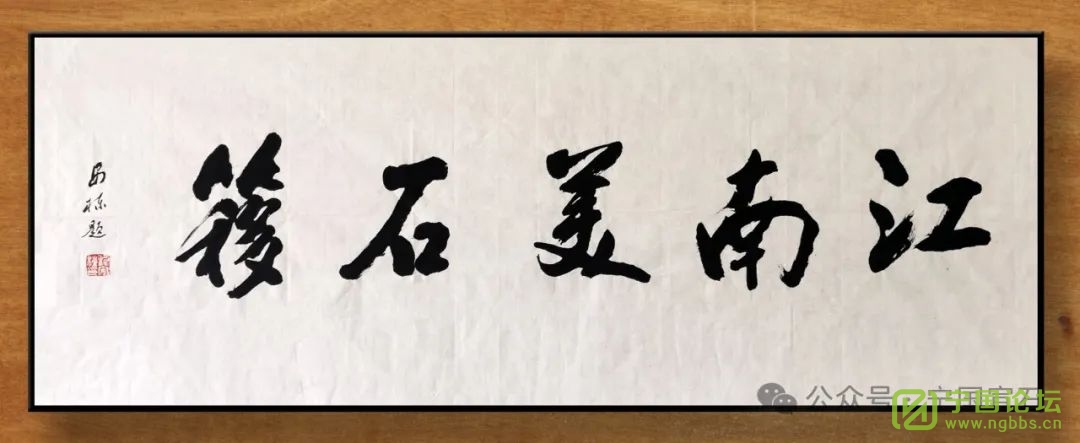 江南美石簃
题
公众号
宁国论坛
www.ngbbs.cn